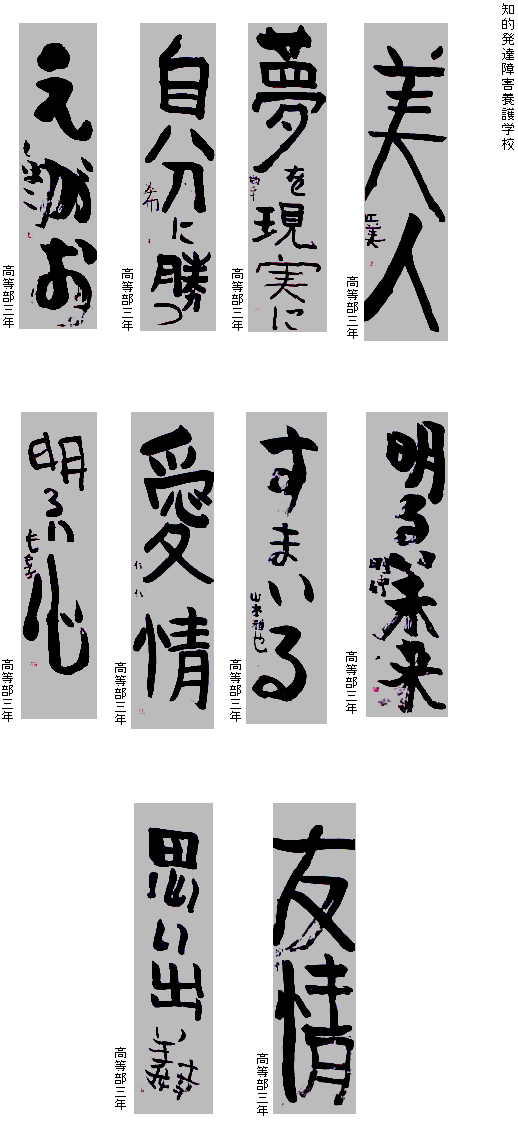 知的発達障害養護学校
美人
高等部三年
夢を現実に
高等部三年
自分に勝つ
高等部三年
えがお
高等部三年
明るい未来
高等部三年
すまいる
山本雅也
高等部三年
愛情
高等部三年
明るい心
高等部三年
友情
高等部三年
思い出
高等部三年